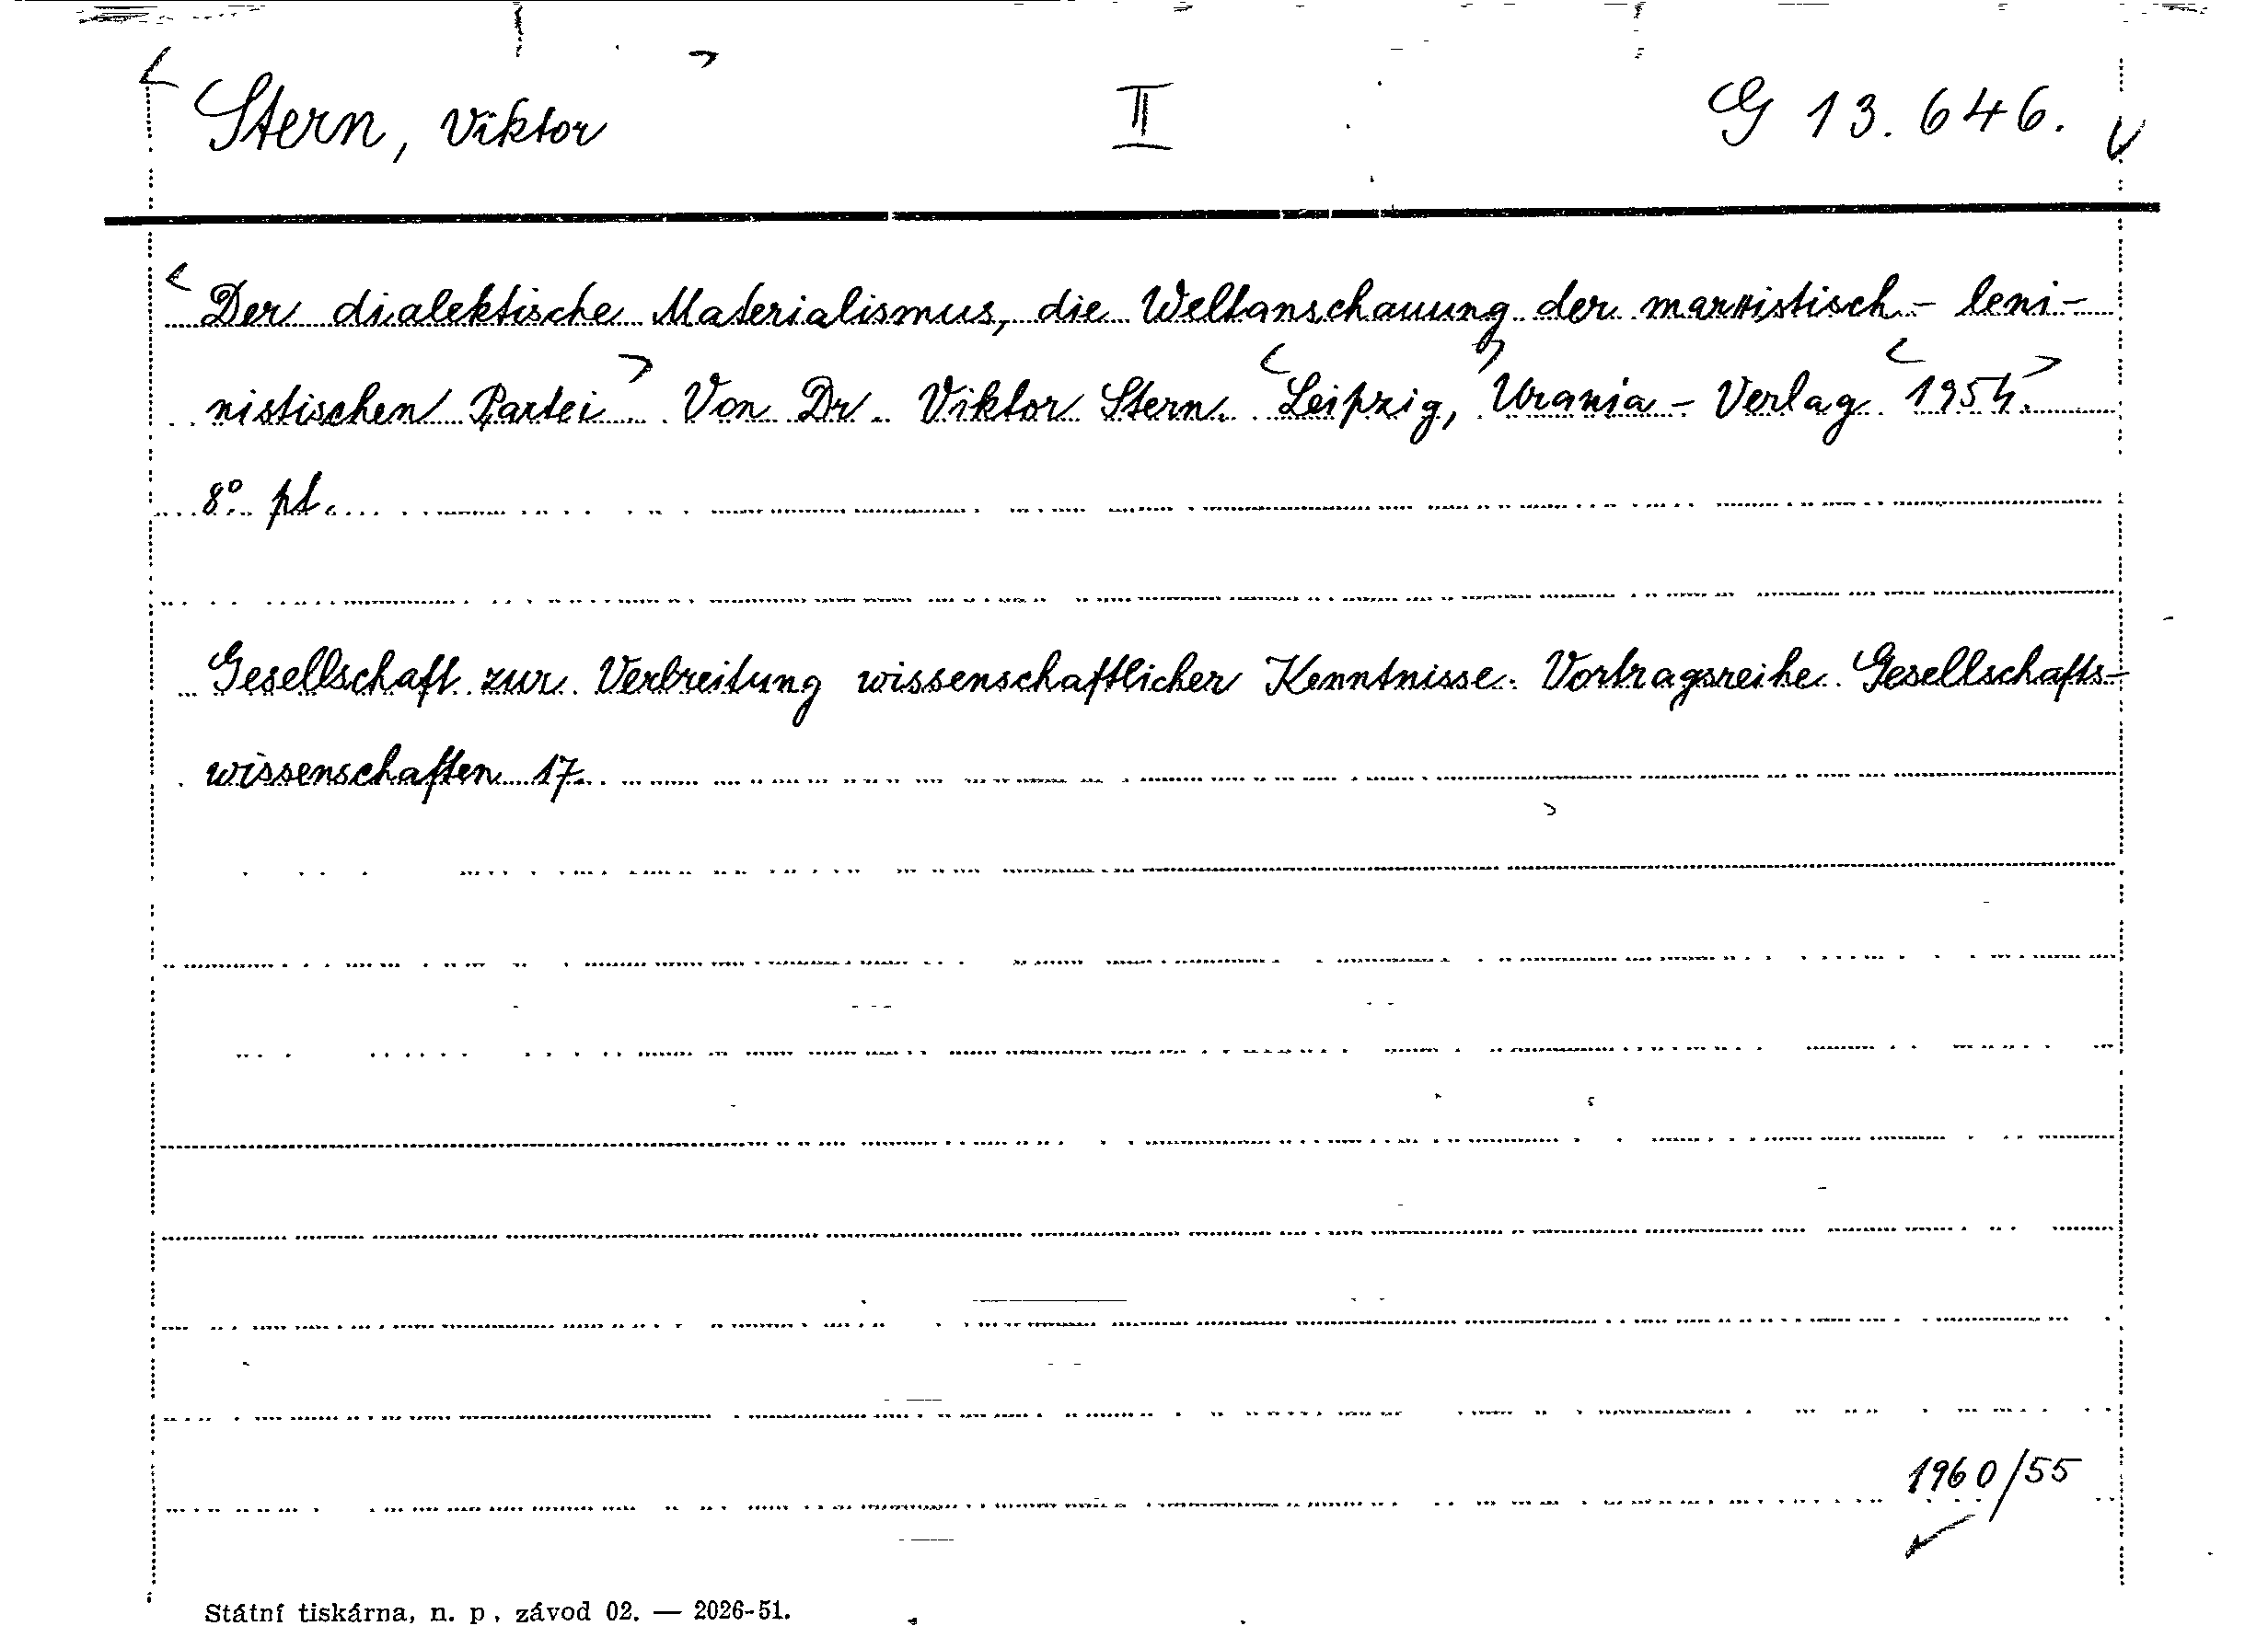 Stern, Viktor II G 13.646.
Der dialektische Materialismus, die Weltanschauung der marxistisch-leni-
nistischen Partei. Von Dr. Viktor Stern. Leipzig, Urania-Verlag 1954.
8° pt.
Gesellschaft zur Verbreitung wissenschaftlicher Kenntnisse. Vortragsreihe Gesellschafts-
wissenschaften 17.
1960/55
Státní tiskárna, n. p., závod 02. — 2026-51.